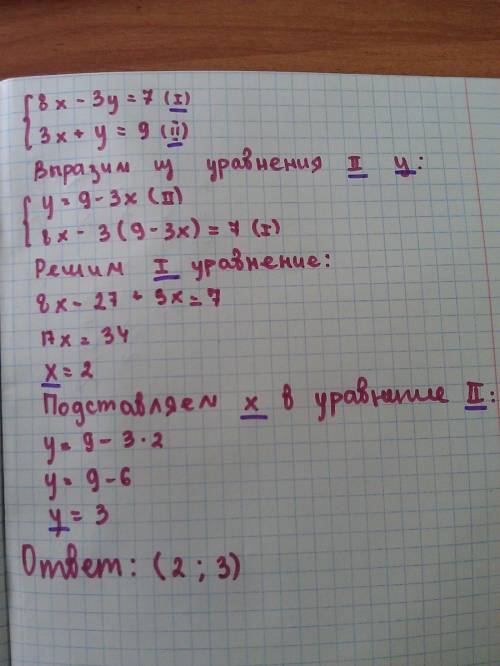 {8x - 3y = 7 (I)
{3x + y = 9 (II)
Выразим из уравнения II y:
{y = 9 - 3x (II)
{8x - 3(9 - 3x) = 7 (I)
Решим I уравнение:
8x - 27 + 9x = 7
17x = 34
x = 2
Подставляем x в уравнение II:
y = 9 - 3·2
y = 9 - 6
y = 3
Ответ: (2; 3)